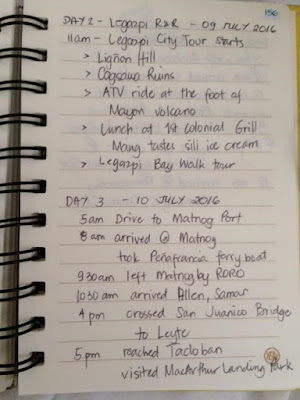 156
DAY 2 - Legazpi R&R - 09 JULY 2016
11am - Legazpi City Tour starts
> Lignon Hill
> Cagsawa Ruins
> ATV ride at the foot of
Mayon volcano
> Lunch at 1st Colonial Grill
Mang tastes sili ice cream
> Legazpi Bay Walk tour
DAY 3 - 10 JULY 2016
5am Drive to Matnog Port
8am arrived @ Matnog
took Peñafrancia ferry boat
930am left Matnog by RORO
1030am arrived Allen, Samar
4pm crossed San Juanico Bridge
to Leyte
5pm reached Tacloban
visited MacArthur Landing Park